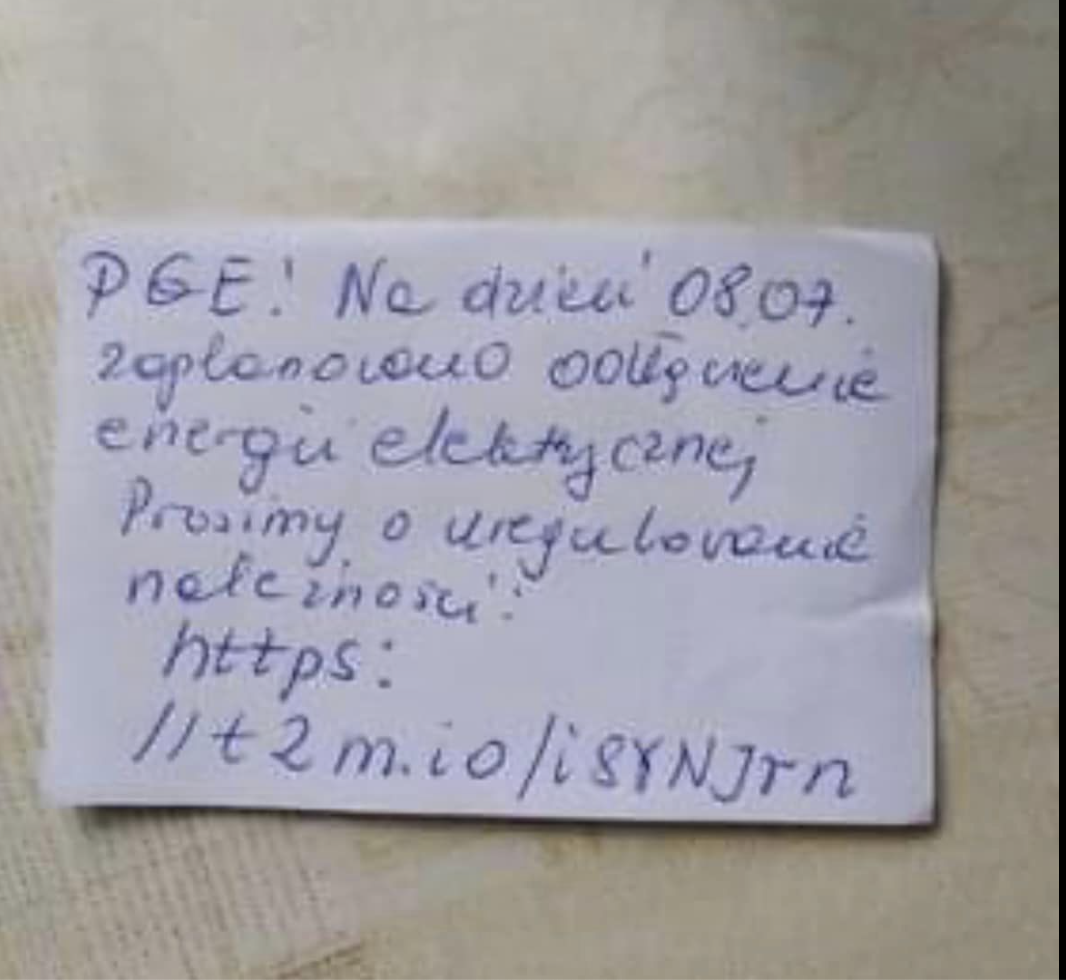 PGE! Na dzień 08.07.
zaplanowano odłączenie
energii elektrycznej
Prosimy o uregulowanie
należności:
https:
//t2m.io/i8YNJrn